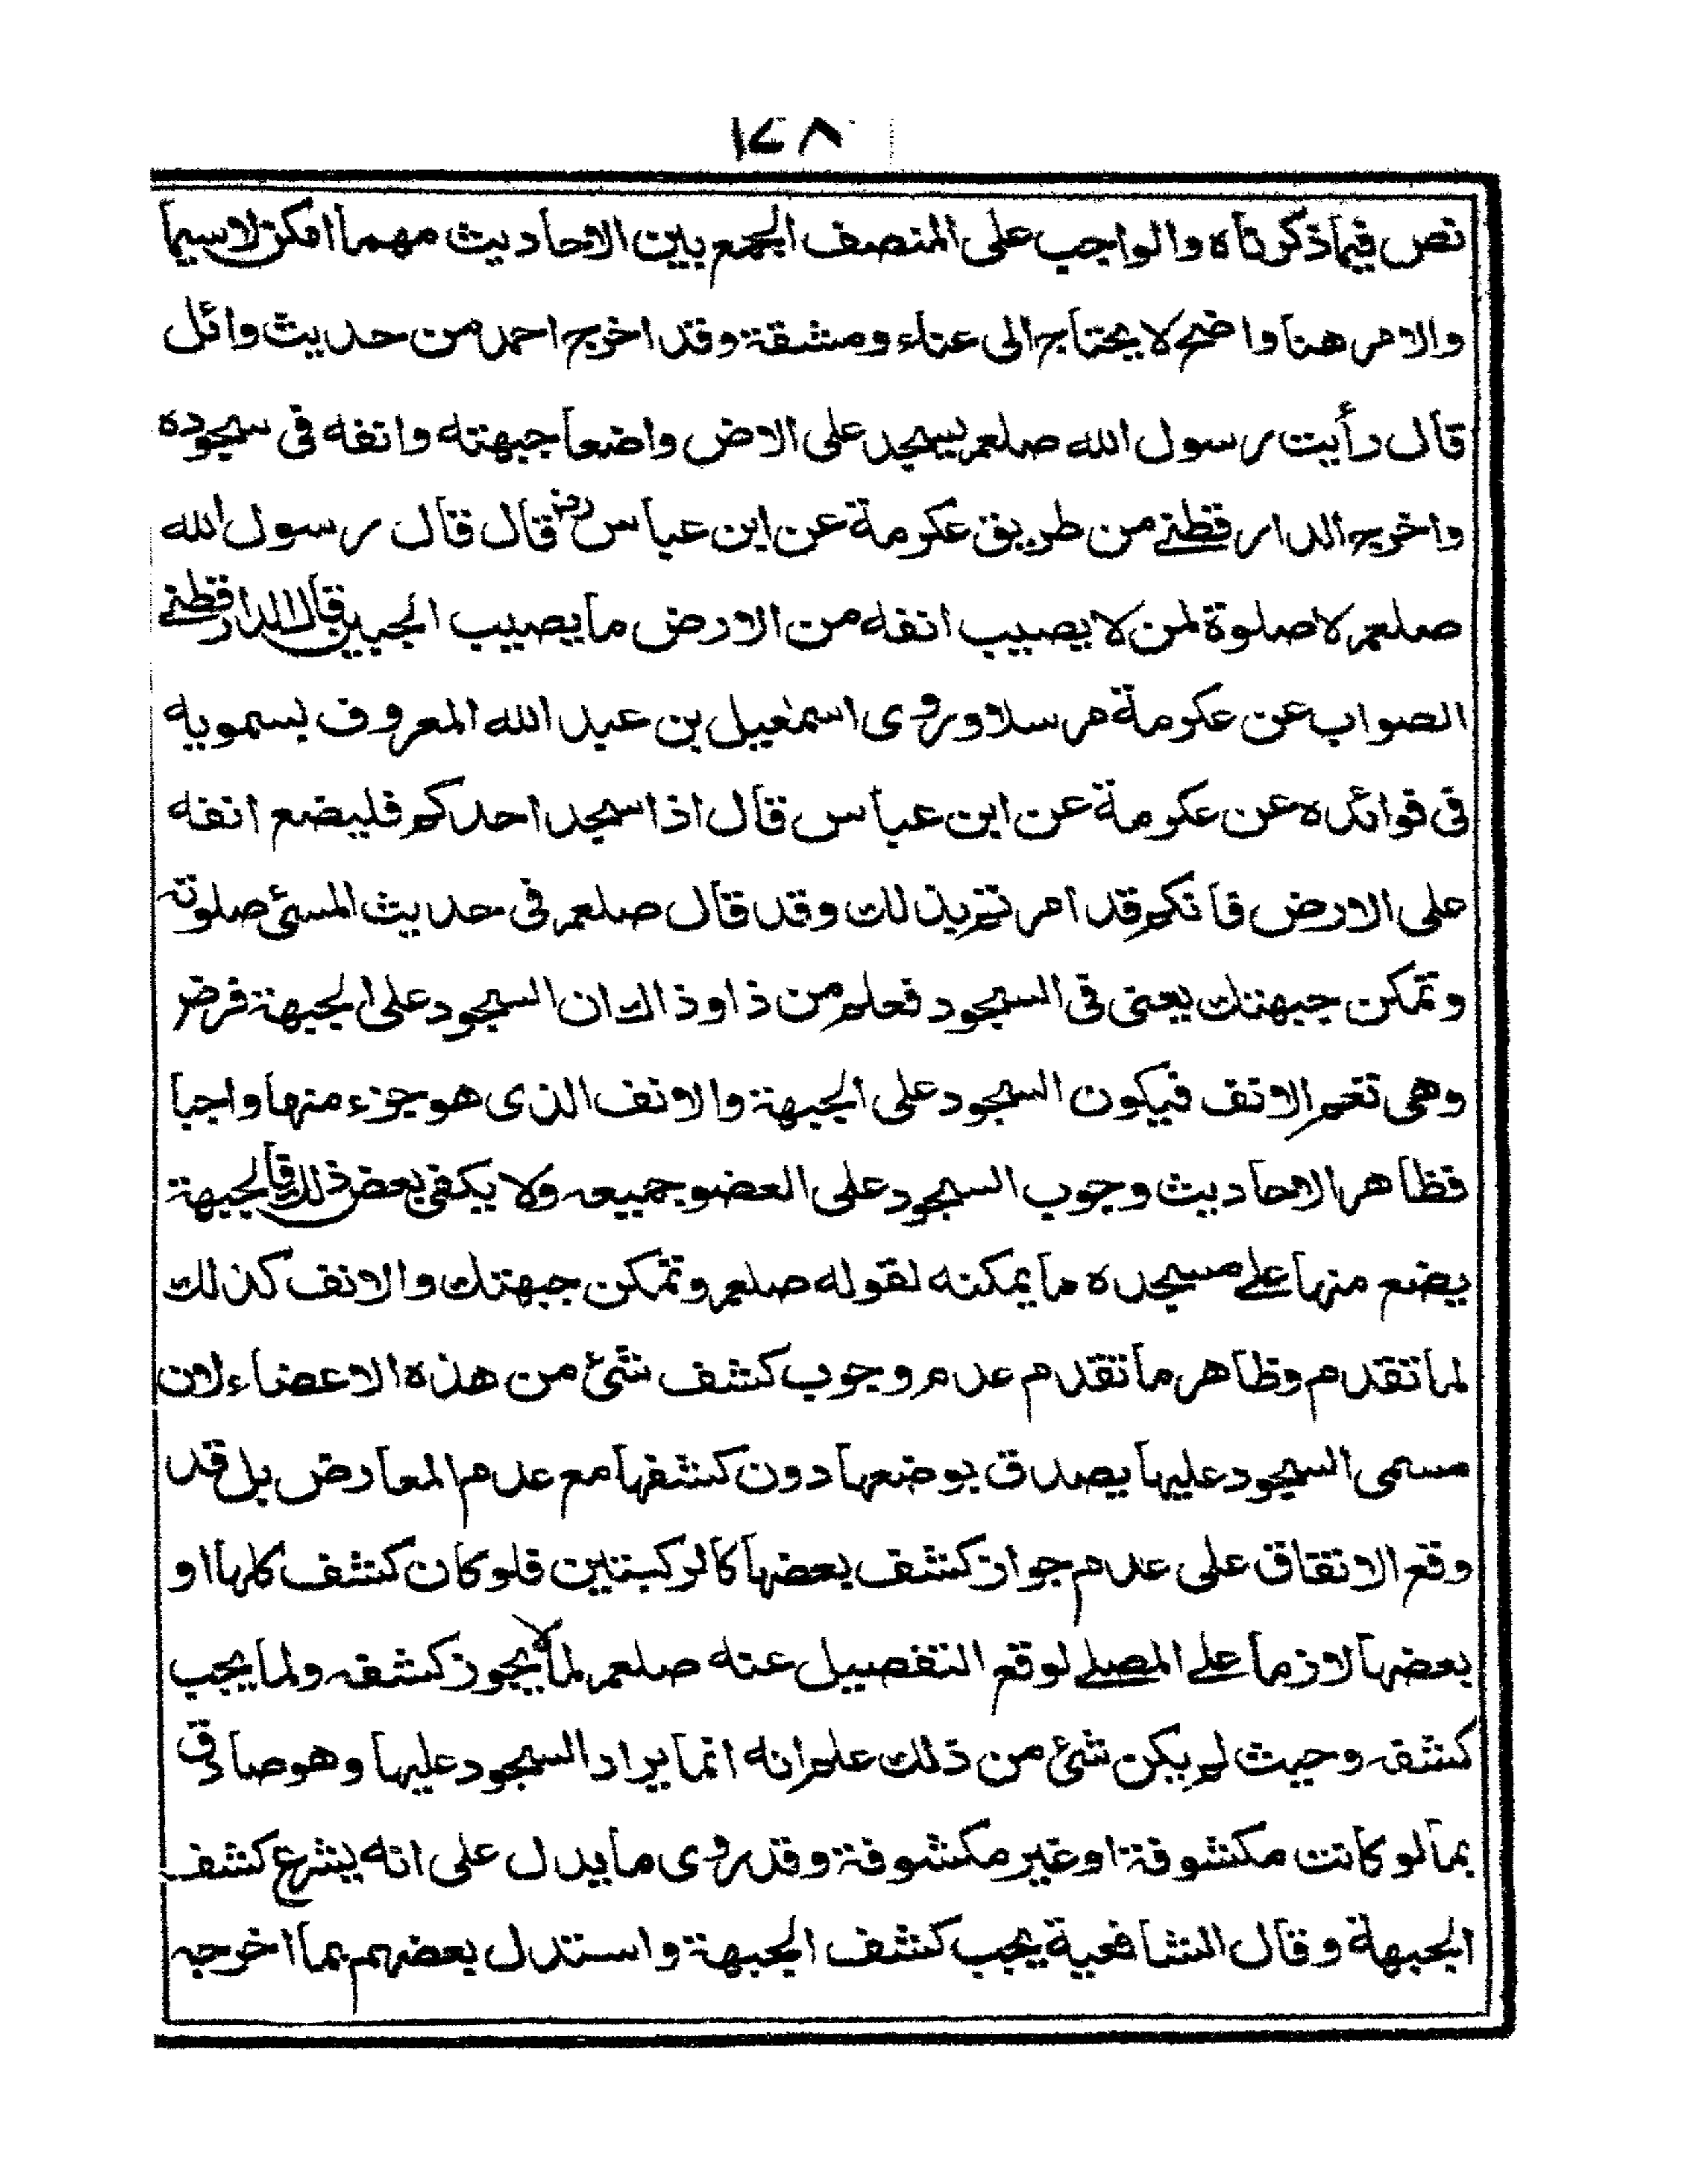 ١٤٨
نص فيما ذكرناه والواجب على المنصف الجمع بين الاحاديث مهما امكن لاسيما
والامر هنا واضح لا يحتاج الى عناء ومشقة وقد اخرج احمد من حديث وائل
قال رأيت رسول الله صلعم يسجد على الارض واضعا جبهته وانفه فى سجوده
واخرج الدارقطنے من طريق عكرمة عن ابن عباس رضـ قال قال رسول الله
صلعم لا صلوة لمن لا يصيب انفه من الارض ما يصيب الجبين قال الدارقطنے
الصواب عن عكرمة مرسلا وروى اسمٰعيل بن عبد الله المعروف بسمويه
فى فوائده عن عكرمة عن ابن عباس قال اذا سجد احدكم فليضع انفه
على الارض فانكم قد امرتم بذلك وقد قال صلعم فى حديث المسئ صلوته
وتمكن جبهتك يعنى فى السجود فعلم من ذا وذاك ان السجود على الجبهة فرض
وهى تعم الانف فيكون السجود على الجبهة والانف الذى هو جزء منها واجبا
فظاهر الاحاديث وجوب السجود على العضو جميعه ولا يكفى بعض ذلك فالجبهة
يضع منها علے مسجده ما يمكنه لقوله صلعم وتمكن جبهتك والانف كذلك
لما تقدم وظاهر ما تقدم عدم وجوب كشف شئ من هذه الاعضاء لان
مسمى السجود عليها يصدق بوضعها دون كشفها مع عدم المعارض بل قد
وقع الاتفاق على عدم جواز كشف بعضها كالركبتين فلو كان كشف كلها او
بعضها لازما علے المصلے لوقع التفصيل عنه صلعم لما لا يجوز كشفه ولما يجب
كشفه وحيث لم يكن شئ من ذلك علم انه انما يراد السجود عليها وهو صادق
بما لو كانت مكشوفة او غير مكشوفة وقد روى ما يدل على انه يشرع كشف
الجبهة وقال الشافعية يجب كشف الجبهة واستدل بعضهم بما اخرجه